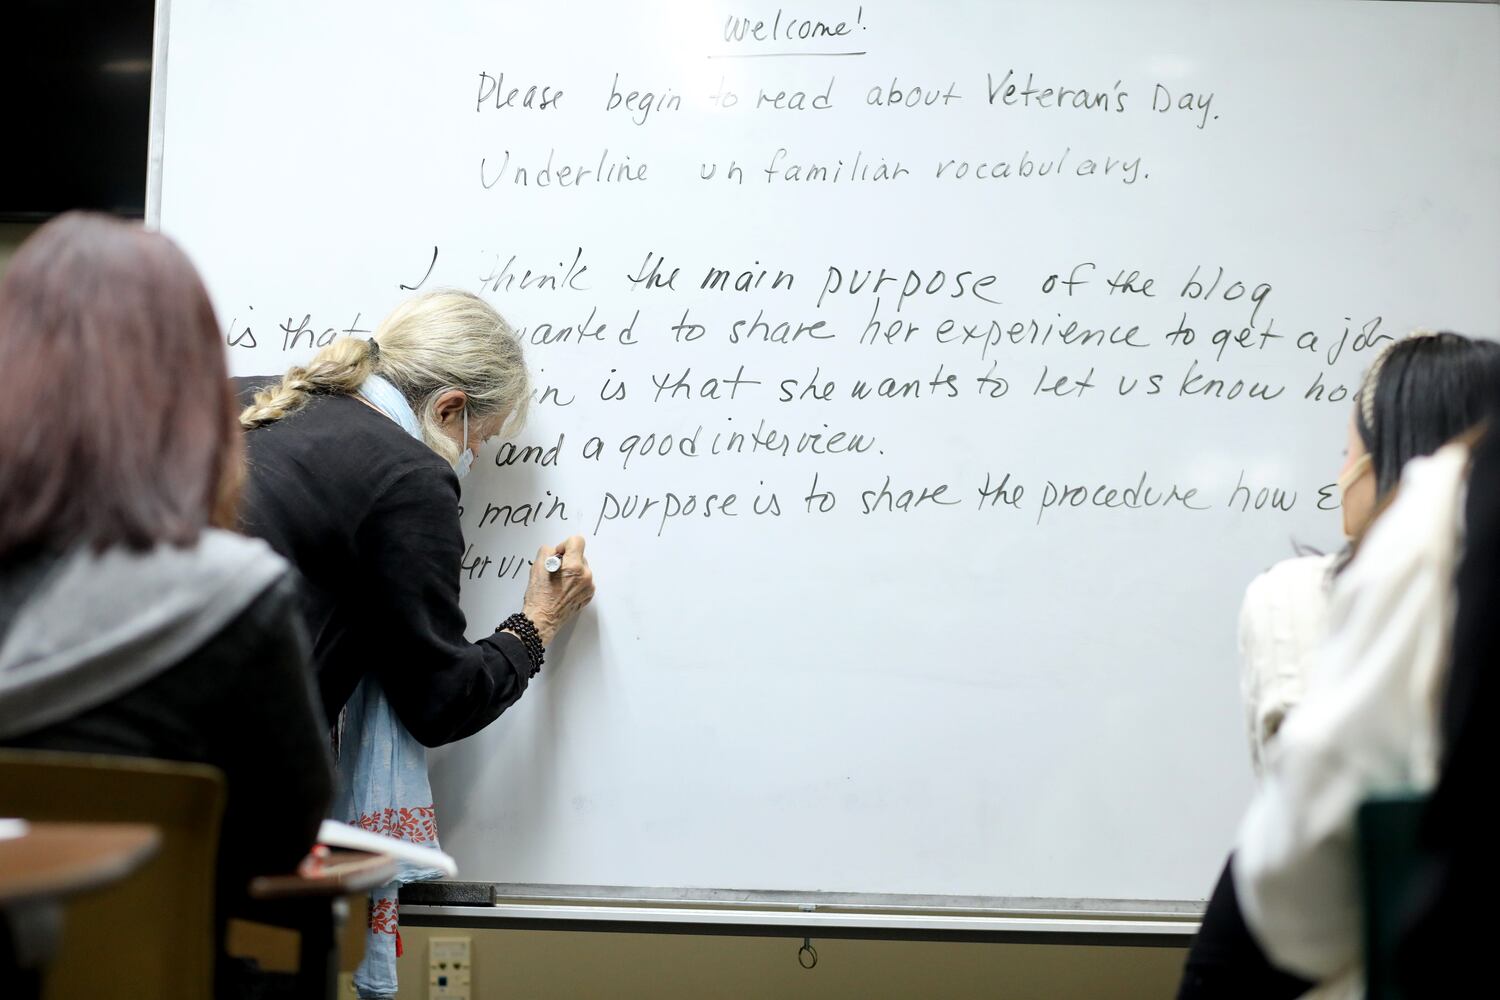 Welcome!
Please begin to read about Veteran's Day.
Underline unfamiliar vocabulary.
I think the main purpose of the blog
is that wanted to share her experience to get a job
is that she wants to let us know
and a good interview.
main purpose is to share the procedure how